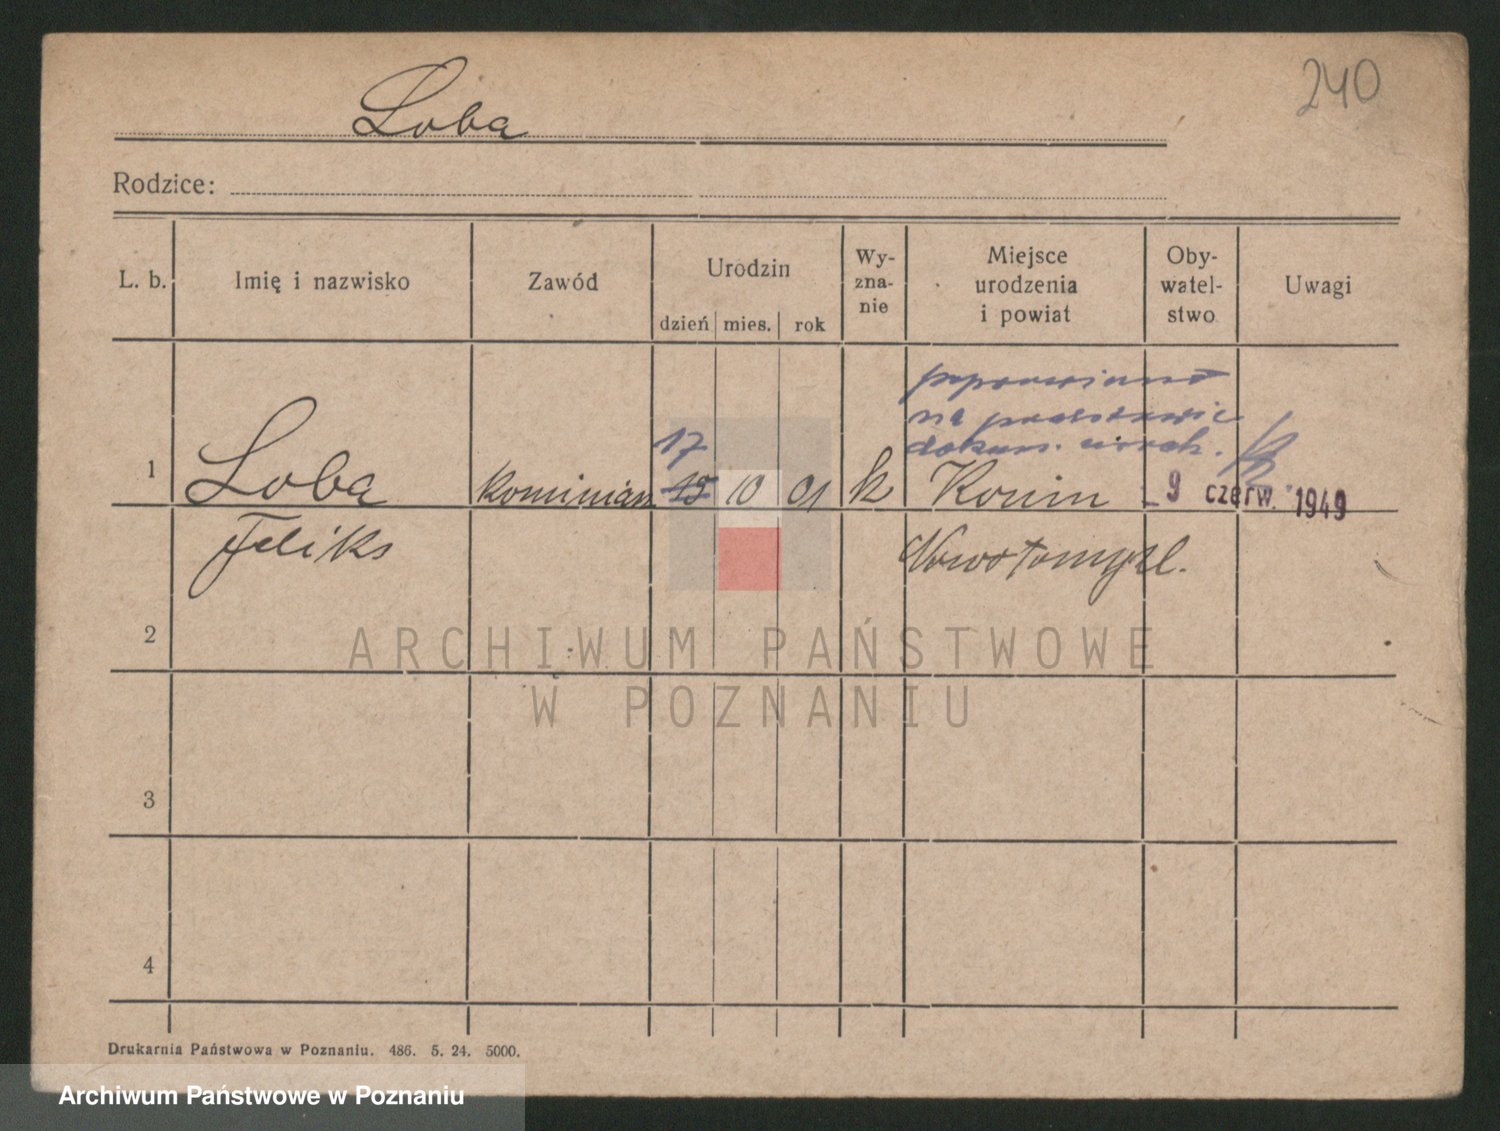 240
Loba
Rodzice:
L. b. Imię i nazwisko Zawód Urodzin dzień mies. rok Wy-zna-nie Miejsce urodzenia i powiat Oby-watel-stwo Uwagi
poprawiono
na podstawie
dokum.
17
1 Loba kominiarz 15 10 01 k Konin 9 czerw. 1949
Feliks Nowotomysl.
2
ARCHIWUM PAŃSTWOWE
W POZNANIU
3
4
Drukarnia Państwowa w Poznaniu. 486. 5. 24. 5000.
Archiwum Państwowe w Poznaniu